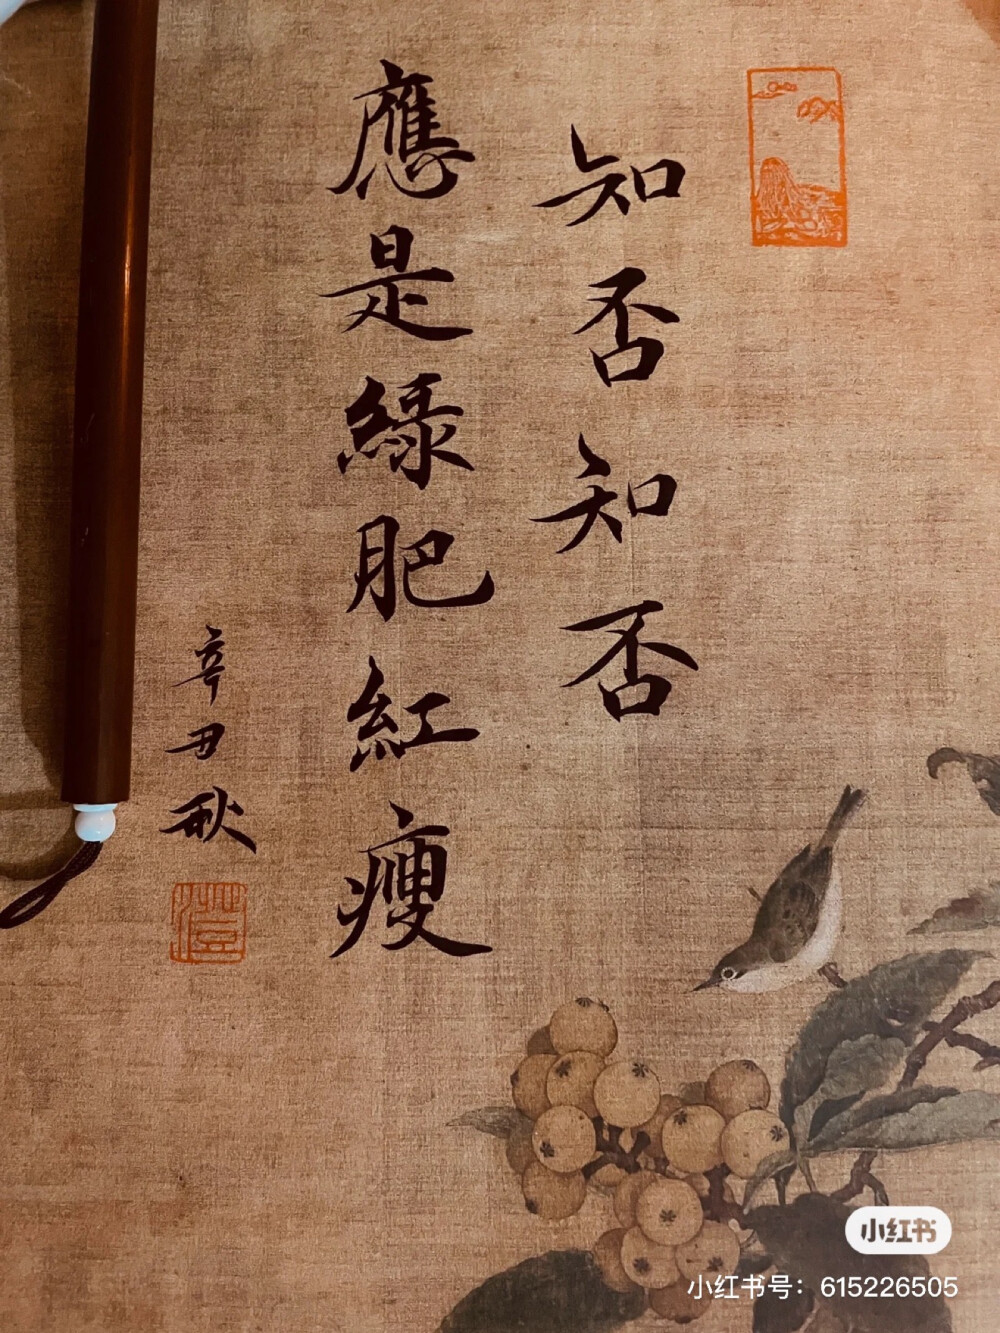 知否知否
應是綠肥紅瘦
辛丑秋
小红书
小红书号：615226505